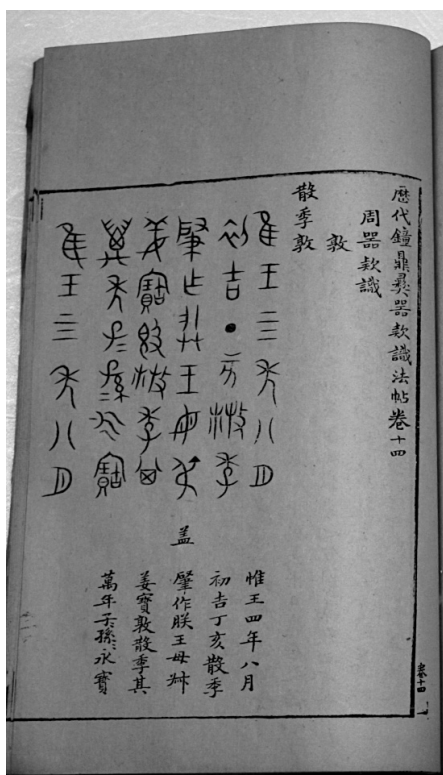 歷代鐘鼎彝器欵識法帖卷十四
周器欵識
敦
散季敦
隹王四年八月
初吉丁亥散季
肇乍朕王母叔
姜寶敦散季其
萬年子孫永寶
隹王四年八月
盖
惟王四年八月
初吉丁亥散季
肇作朕王母叔
姜寶敦散季其
萬年子孫永寶
卷十四
一